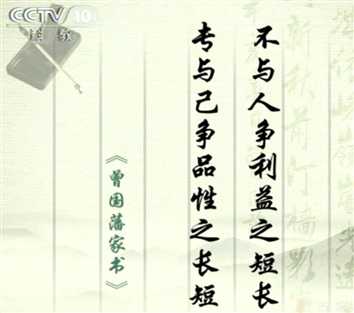 CCTV 10
不与人争利益之短长
专与己争品性之长短
《曾国藩家书》